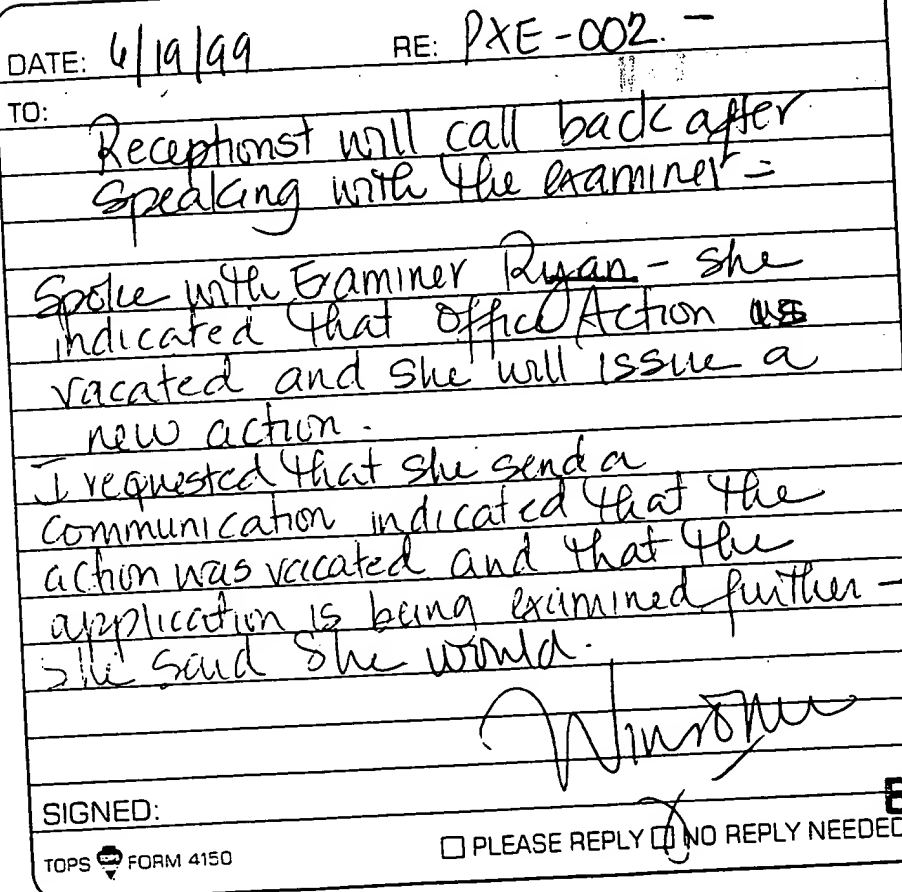 DATE: 6/19/99 RE: PXE-002. -
TO:
Receptionst will call back after
speaking with the examiner =
Spoke with Examiner Ryan - she
indicated that Office Action was
vacated and she will issue a
new action.
I requested that she send a
communication indicated that the
action was vacated and that the
application is being examined further -
she said she would.
SIGNED:
TOPS FORM 4150 ☐ PLEASE REPLY ☒ NO REPLY NEEDED